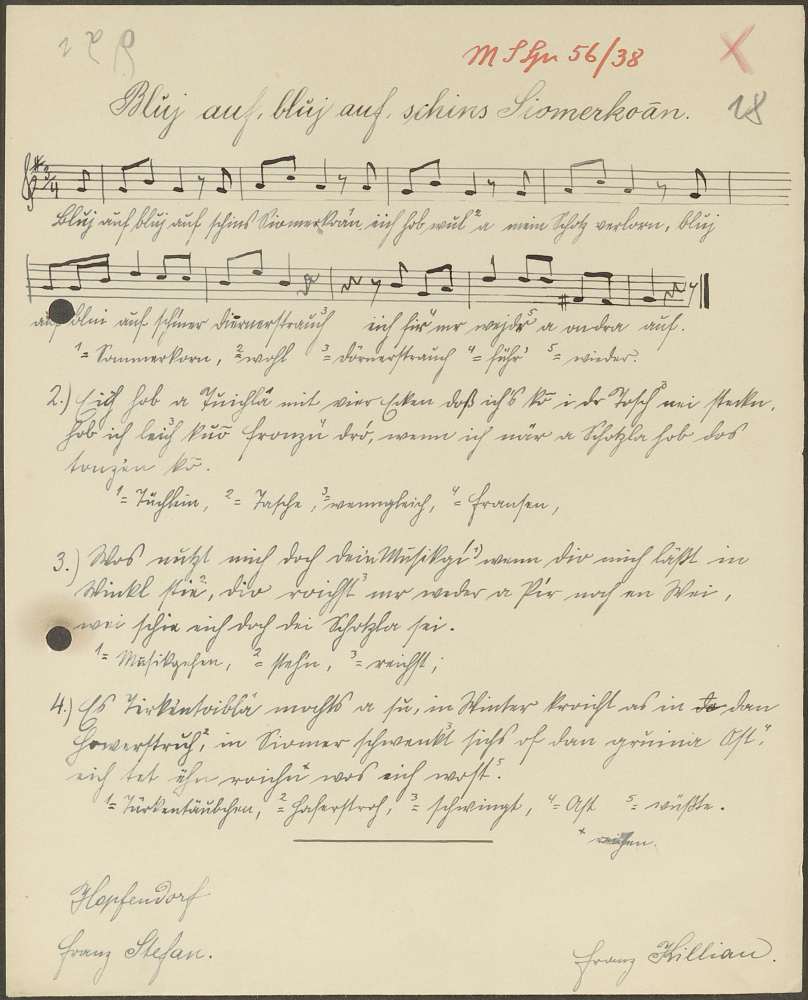 M S Gr 56/38
18
Bluj auf, bluj auf, schins Siomerkoãn.
Bluj auf bluj auf schins Siomerkoãn eich hob wul² a mein Schotz verlorn, bluj
auf bluj auf schiner diernerstrauch³ eich führ⁴ mr wejdr⁵ a ondra auf.
¹= Sommerkorn, ²= wohl ³= dörnerstrauch ⁴= führ' ⁵= wieder.
2.) Eich hob a Tuichlã¹ mit vier Ecken doß ich's kõ i dr Tosch² nei steckn,
hob ich leich³ kuõ fronzn⁴ drõ, wenn ich när a Schotzla hob dos
tonzen kõ.
¹= Tüchlein, ²= Tasche, ³= wenngleich, ⁴= Fransen,
3.) Wos nutzt mich doch dein Musikgi¹ wenn dio mich läßt in
Winkl stie², dio roichst³ mr weder a Pir noch en Wei,
wei schie eich doch dei Schotzla sei.
¹= Musikgehen, ²= stehn, ³= reichst;
4.) Es Tirkntoiblã¹ mochts a su, in Winter kroicht as in do dan
Howerstruh², in Siomer schwenkt³ sichs of dan gruina Ost⁴,
eich tet ihn roichn⁺ wos eich wost⁵.
¹= Türkentäubchen, ²= Haferstroh, ³= schwingt, ⁴= Ast ⁵= wüßte.
Hopfendorf
Franz Stefan.
Franz Killian.